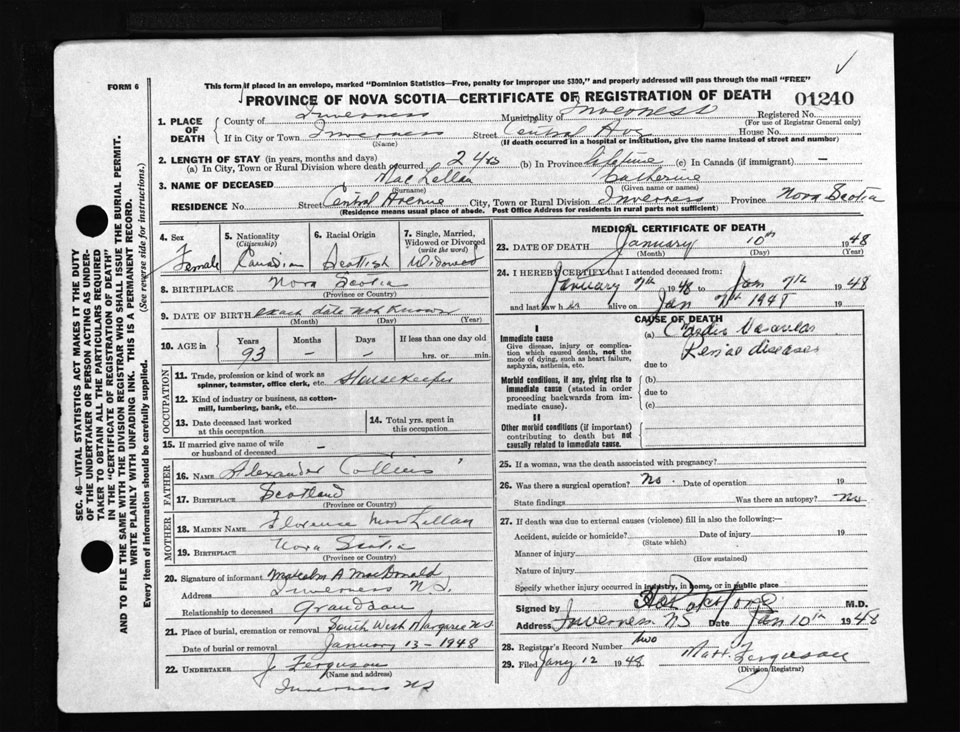 FORM 6
This form if placed in an envelope, marked "Dominion Statistics—Free, penalty for improper use $300," and properly addressed will pass through the mail "FREE"
PROVINCE OF NOVA SCOTIA—CERTIFICATE OF REGISTRATION OF DEATH
01240
1. PLACE OF DEATH
County of Inverness Municipality of Inverness Registered No.
(For use of Registrar General only)
If in City or Town Inverness Street Central Ave House No.
(Name) (If death occurred in a hospital or institution, give the name instead of street and number)
2. LENGTH OF STAY (in years, months and days)
(a) In City, Town or Rural Division where death occurred 2 yrs (b) In Province lifetime (c) In Canada (if immigrant) —
3. NAME OF DECEASED MacLellan Catherine
(Surname) (Given name or names)
RESIDENCE No. Street Central Avenue City, Town or Rural Division Inverness Province Nova Scotia
(Residence means usual place of abode. Post Office Address for residents in rural parts not sufficient)
4. Sex
Female
5. Nationality (Citizenship)
Canadian
6. Racial Origin
Scottish
7. Single, Married, Widowed or Divorced (write the word)
Widowed
8. BIRTHPLACE Nova Scotia
(Province or Country)
9. DATE OF BIRTH exact date not known
(Month) (Day) (Year)
10. AGE in
Years Months Days If less than one day old
93 — — hrs. or min.
OCCUPATION
11. Trade, profession or kind of work as spinner, teamster, office clerk, etc. Housekeeper
12. Kind of industry or business, as cotton-mill, lumbering, bank, etc.
13. Date deceased last worked at this occupation
14. Total yrs. spent in this occupation
15. If married give name of wife or husband of deceased —
FATHER
16. NAME Alexander Collins
17. BIRTHPLACE Scotland
MOTHER
18. MAIDEN NAME Florence MacLellan
19. BIRTHPLACE Nova Scotia
(Province or Country)
20. Signature of informant Malcolm A MacDonald
Address Inverness N.S.
Relationship to deceased Grandson
21. Place of burial, cremation or removal South West Margaree N.S
Date of burial or removal January 13-1948
22. UNDERTAKER J Ferguson
(Name and address)
Inverness NS
MEDICAL CERTIFICATE OF DEATH
23. DATE OF DEATH January 10th 1948
(Month) (Day) (Year)
24. I HEREBY CERTIFY that I attended deceased from:
January 7th 1948 to Jan 9th 1948
and last saw h er alive on Jan 1948
CAUSE OF DEATH
I
Immediate cause
Give disease, injury or complication which caused death, not the mode of dying, such as heart failure, asphyxia, asthenia, etc.
(a) Cardio Vascular
Renal disease
due to
Morbid conditions, if any, giving rise to immediate cause (stated in order proceeding backwards from immediate cause).
(b)
due to
(c)
II
Other morbid conditions (if important) contributing to death but not causally related to immediate cause.
25. If a woman, was the death associated with pregnancy?
26. Was there a surgical operation? No. Date of operation 19
State findings Was there an autopsy? No
27. If death was due to external causes (violence) fill in also the following:—
Accident, suicide or homicide? Date of injury 19
(State which)
Manner of injury
(How sustained)
Nature of injury
Specify whether injury occurred in industry, in home, or in public place
Signed by M.D.
Address Inverness NS Date Jan 10th 1948
28. Registrar's Record Number two
29. Filed Jany 12 1948 Ferguson
(Division Registrar)
SEC. 46—VITAL STATISTICS ACT MAKES IT THE DUTY
OF THE UNDERTAKER OR PERSON ACTING AS UNDER-
TAKER TO OBTAIN ALL THE PARTICULARS REQUIRED
IN THE "CERTIFICATE OF REGISTRATION OF DEATH"
AND TO FILE THE SAME WITH THE DIVISION REGISTRAR WHO SHALL ISSUE THE BURIAL PERMIT.
WRITE PLAINLY WITH UNFADING INK. THIS IS A PERMANENT RECORD.
Every item of information should be carefully supplied. (See reverse side for instructions.)